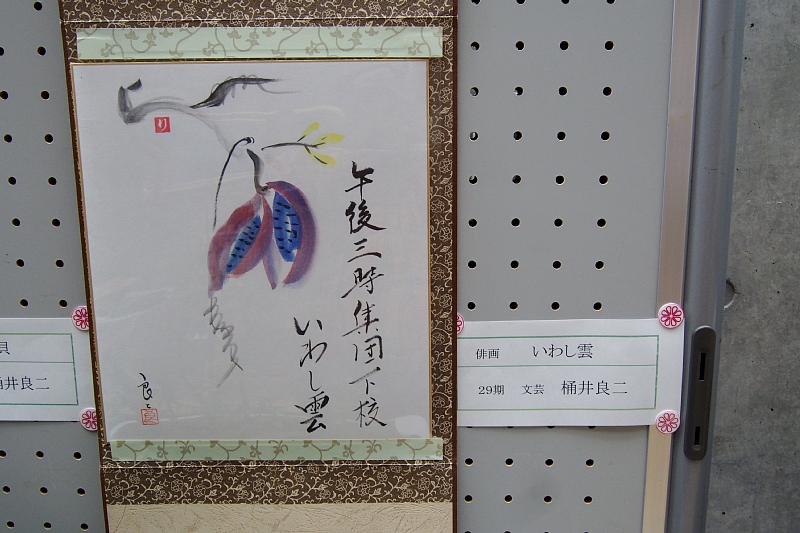 午後三時集団下校
いわし雲
良二
俳画 いわし雲
29期 文芸 桶井良二
貝
桶井良二